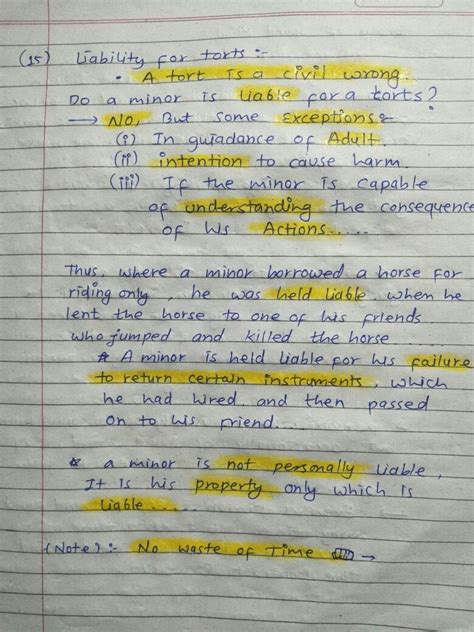 (15) Liability for torts :-
• A tort is a civil wrong.
Do a minor is liable for a torts?
→ No, But some Exceptions :-
(i) In guiadance of Adult.
(ii) intention to cause harm.
(iii) If the minor is capable
of understanding the consequence
of his Actions.....
Thus, where a minor borrowed a horse for
riding only, he was held liable when he
lent the horse to one of his friends
who jumped and killed the horse....
* A minor is held liable for his failure
to return certain instruments, which
he had hired and then passed
on to his friend....
* a minor is not personally liable,
It is his property only which is
liable......
(Note) :- No waste of Time →